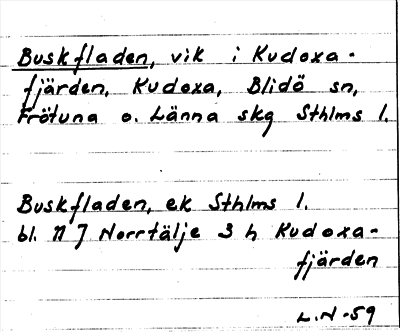 Buskfladen, vik i Kudoxa-
fjärden, Kudoxa, Blidö sn,
Frötuna o. Länna skg Sthlms l.
Buskfladen, ek Sthlms l.
bl. 11 J Norrtälje 3 h Kudoxa-
fjärden
L.N-59